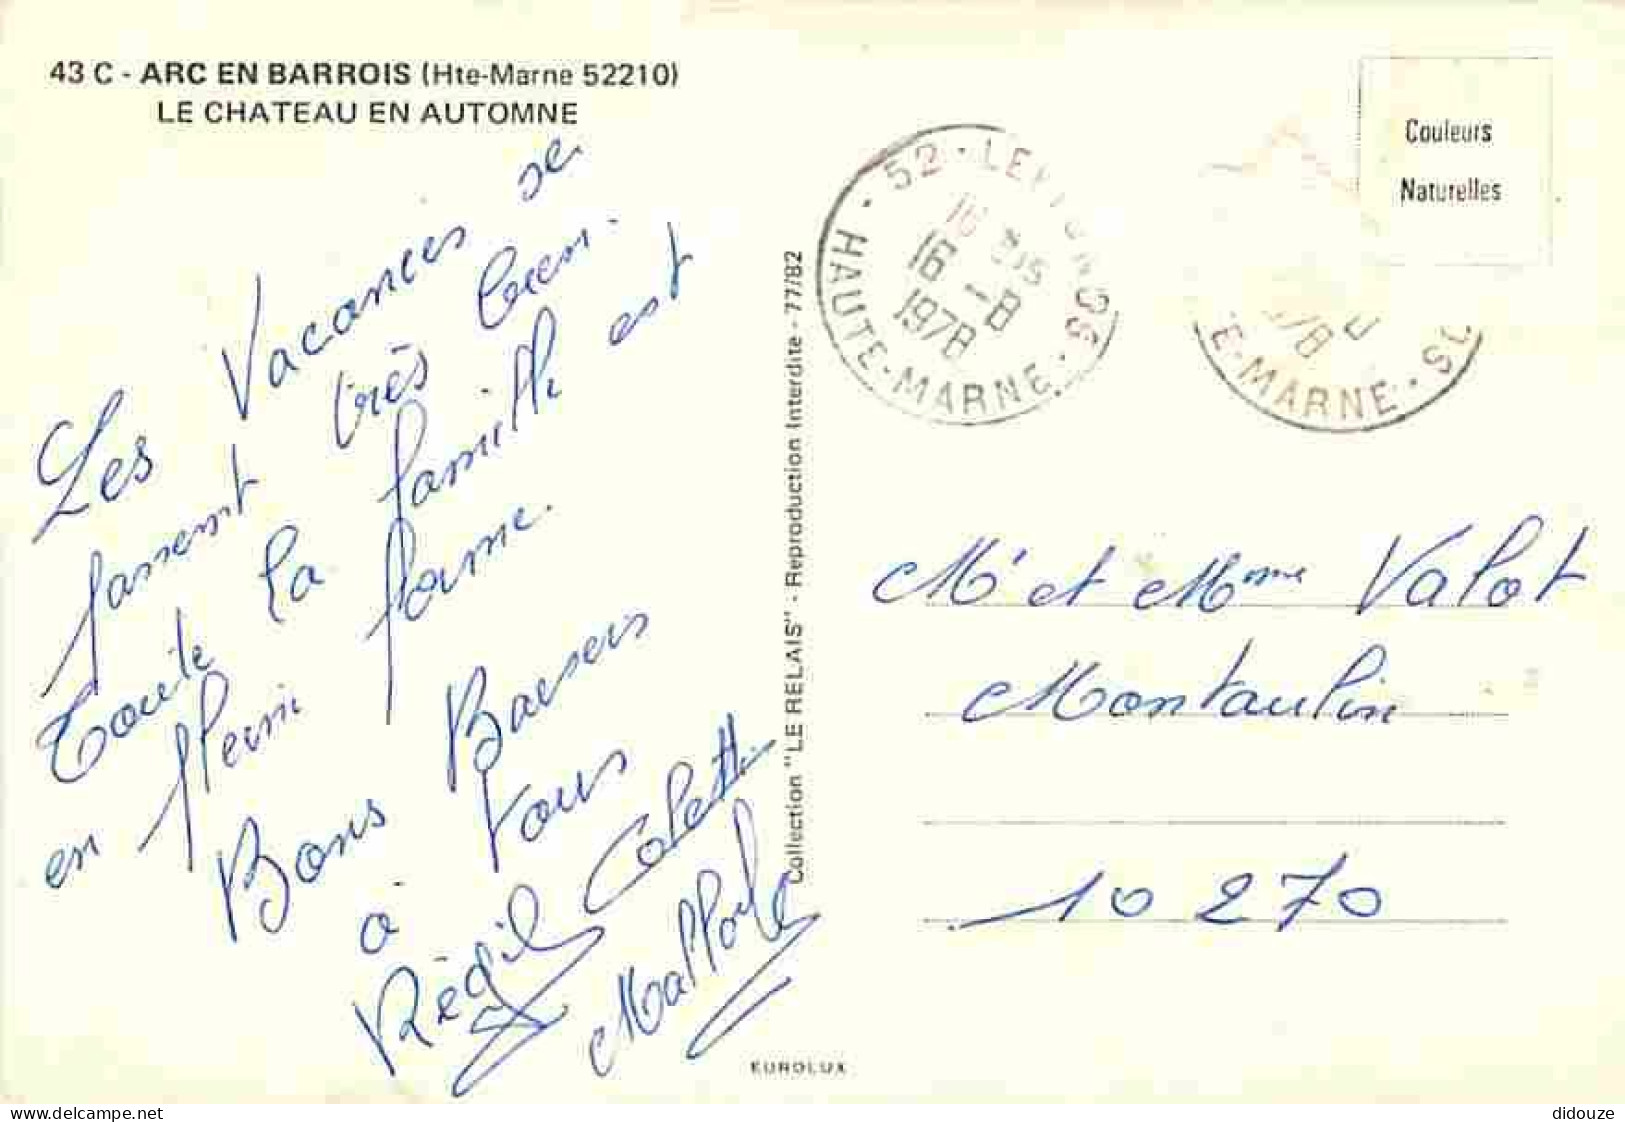 43 C - ARC EN BARROIS (Hte-Marne 52210)
LE CHATEAU EN AUTOMNE
Les Vacances se
passent très bien.
Toute la famille est
en pleine forme.
Bons Baisers
à tous
Régil Colette
Collection "LE RELAIS" - Reproduction Interdite - 77/82
EUROLUX
52 -
HAUTE-MARNE
16 -8
1978
E-MARNE
Couleurs
Naturelles
Mr et Mme Valot
Montaulin
10 270
delcampe.net
didouze